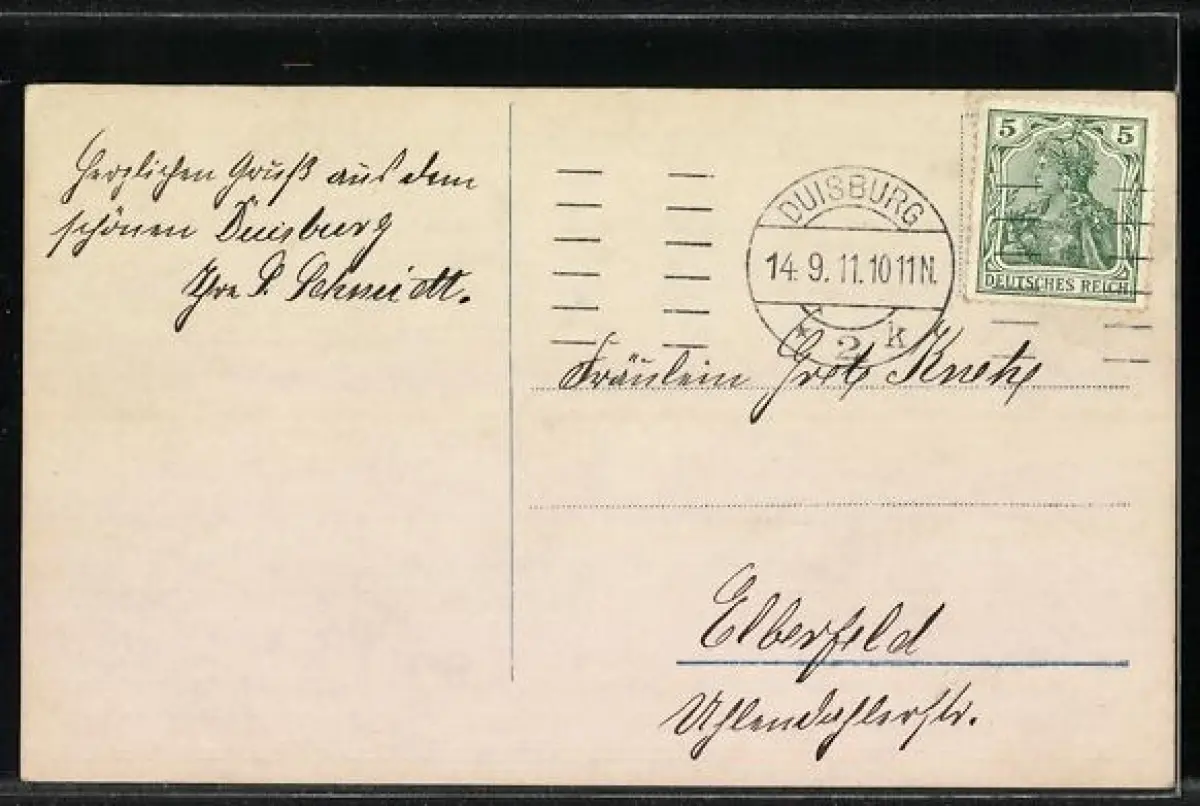 Herzlichen Gruß aus dem
schönen Duisburg
Ihre P. Schmidt.
DUISBURG
14.9.11.10 11 N.
* 2 k
5 5
DEUTSCHES REICH
Fräulein Gret
Elberfeld
Uhlendahlerstr.